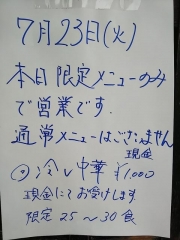 7月23日(火)
本日限定メニューのみ
で営業です.
通常メニューはございません
現金
◎冷し中華 ¥1,000
現金にてお受けします.
限定 25〜30食